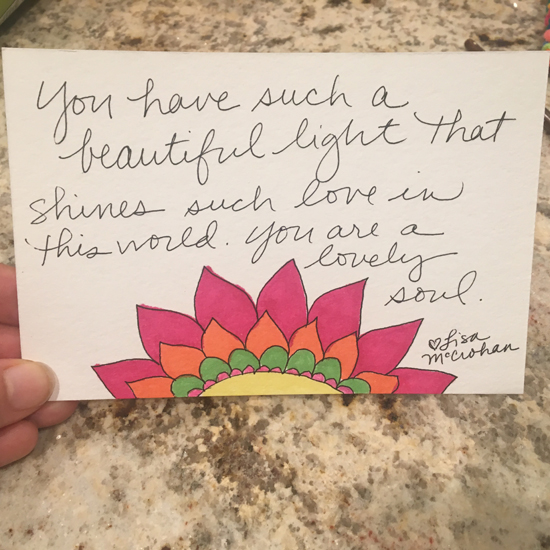 You have such a
beautiful light that
shines such love in
this world. You are a
lovely
soul.
♡Lisa
McCrohan